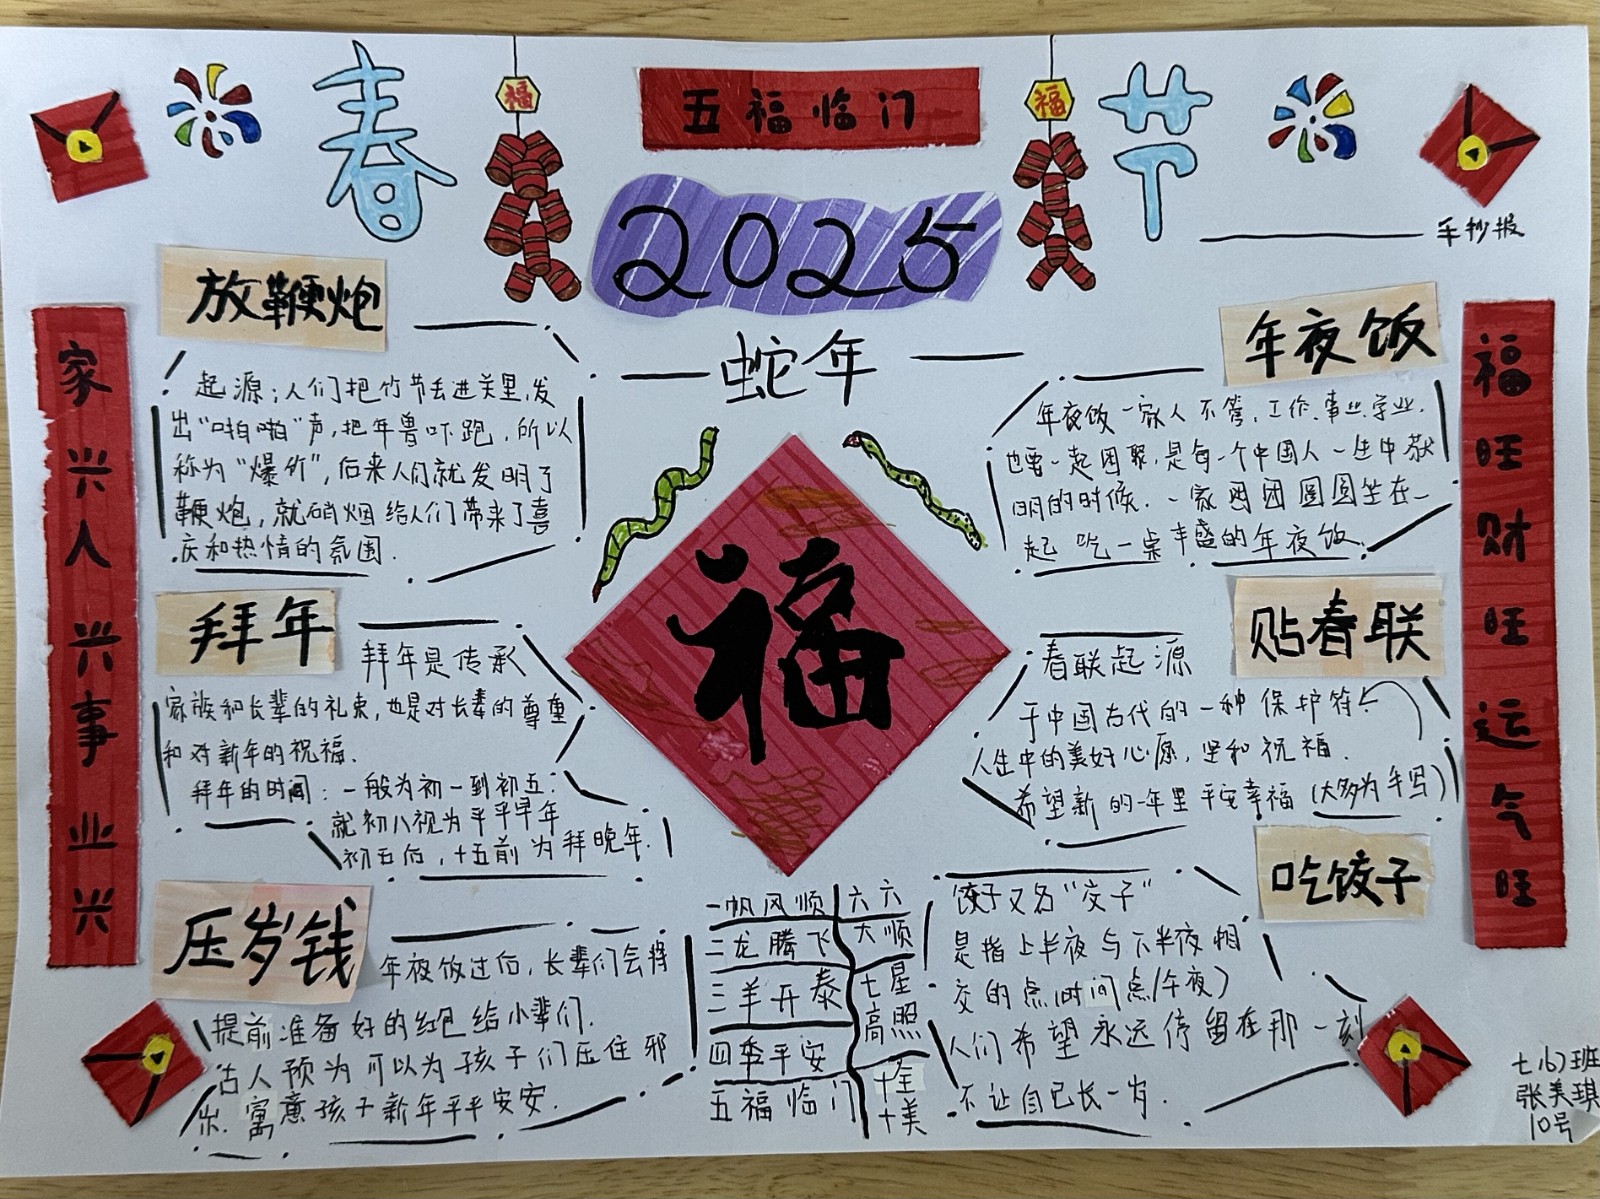 春
福
五福临门
福
节
2025
手抄报
蛇年
家兴人兴事业兴
福旺财旺运气旺
放鞭炮
起源:人们把竹节丢进关里,发
出"啪啪"声,把年兽吓跑,所以
称为"爆竹",后来人们就发明了
鞭炮,就硝烟给人们带来了喜
庆和热情的氛围.
年夜饭
年夜饭一家人不管,工作.事业.学业.
也要一起团聚,是每一个中国人一生中
的时候.一家团团圆圆坐在一
起吃一桌丰盛的年夜饭.
福
拜年
拜年是传承
家族和长辈的礼束,也是对长辈的尊重
和对新年的祝福.
拜年的时间:一般为初一到初五:
就初八视为平平早年
初五后,十五前为拜晚年.
贴春联
春联起源
于中国古代的一种保护符
人生中的美好心愿,坚和祝福.
希望新的一年里平安幸福(大多为手写)
压岁钱
年夜饭过后,长辈们会将
提前准备好的红包给小辈们.
古人预为可以为孩子们压住邪
祟.寓意孩子新年平平安安.
一帆风顺
二龙腾飞
三羊开泰
四季平安
五福临门
六六
大顺
七星
高照
十全
十美
吃饺子
饺子又名"交子"
是指上半夜与下半夜相
交的点(时间点/午夜)
人们希望永远停留在那一刻
不让自己长一岁.
七(6)班
张美琪
10号